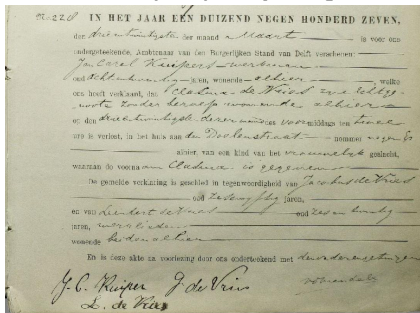 IN HET JAAR EEN DUIZEND NEGEN HONDERD ZEVEN,
den drieentwintigsten der maand Maart is voor ons
ondergeteekende, Ambtenaar van den Burgerlijken Stand van Delft verschenen:
Jan Carel Kuipers werkman
oud achtentwintig jaren, wonende alhier, welke
ons heeft verklaard, dat Clasina de Vries zijne echtge-
noote zonder beroep wonende alhier
op den drieentwintigste dezer maand des voormiddags ten twee
ure is verlost, in het huis aan de Doelenstraat nommer negen
alhier, van een kind van het vrouwelijk geslacht,
waaraan de voornaam Clasina is gegeven
De gemelde verklaring is geschied in tegenwoordigheid van Jacobus de Vries
oud zesenvijftig jaren,
en van Leendert de Vries oud zesentwintig
jaren, werklieden
wonende beiden alhier
En is deze akte na voorlezing door ons onderteekend met den vader en getuigen
J. C. Kuiper J. de Vries
L. de Vries